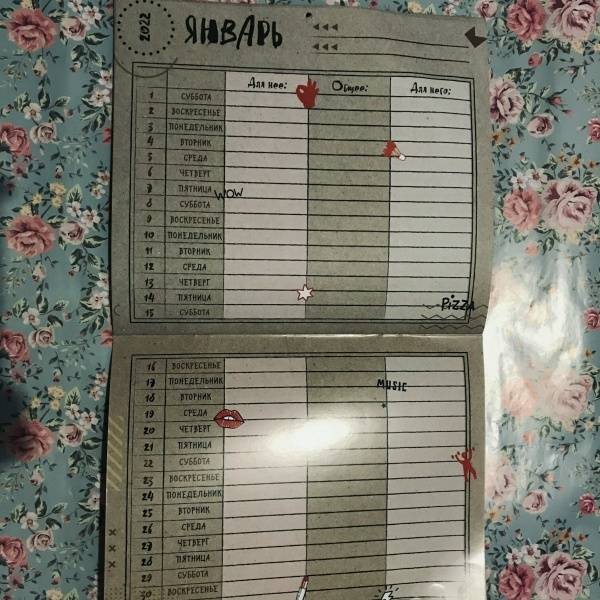 2022
ЯНВАРЬ
Для нее: Общее: Для него:
1 СУББОТА
2 ВОСКРЕСЕНЬЕ
3 ПОНЕДЕЛЬНИК
4 ВТОРНИК
5 СРЕДА
6 ЧЕТВЕРГ
7 ПЯТНИЦА WOW
8 СУББОТА
9 ВОСКРЕСЕНЬЕ
10 ПОНЕДЕЛЬНИК
11 ВТОРНИК
12 СРЕДА
13 ЧЕТВЕРГ
14 ПЯТНИЦА PIZZA
15 СУББОТА
16 ВОСКРЕСЕНЬЕ
17 ПОНЕДЕЛЬНИК MUSIC
18 ВТОРНИК
19 СРЕДА
20 ЧЕТВЕРГ
21 ПЯТНИЦА
22 СУББОТА
23 ВОСКРЕСЕНЬЕ
24 ПОНЕДЕЛЬНИК
25 ВТОРНИК
26 СРЕДА
27 ЧЕТВЕРГ
28 ПЯТНИЦА
29 СУББОТА
30 ВОСКРЕСЕНЬЕ